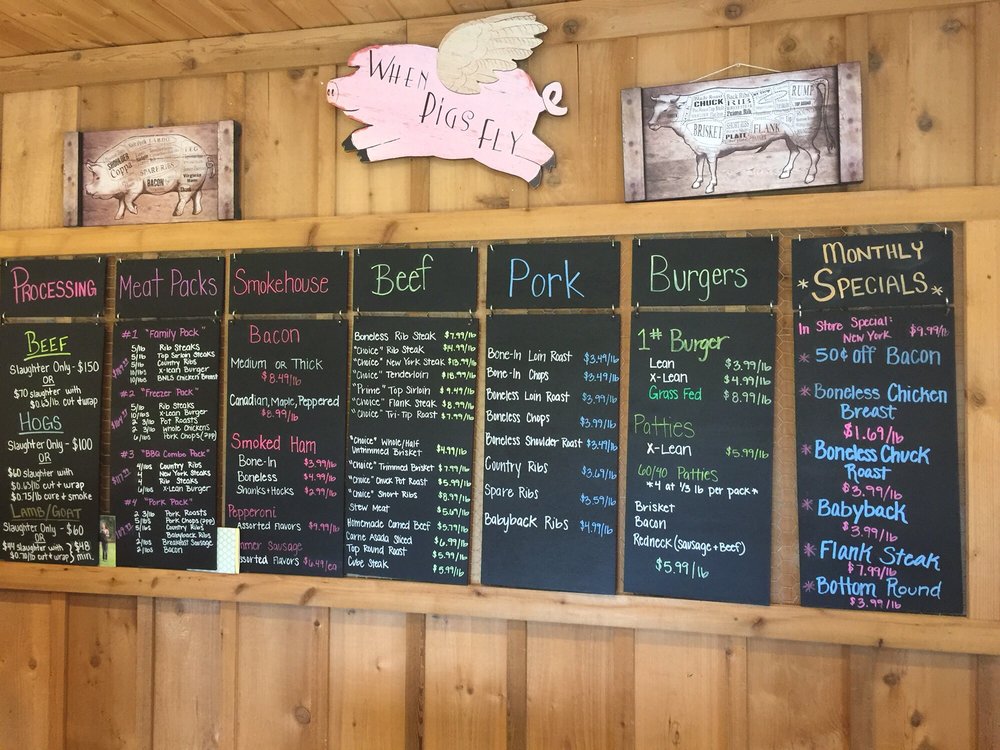 WHEN
PIGS FLY
SHOULDER
SPARE RIBS
BACON
LEG
CHUCK
RIB
BRISKET
PLATE
FLANK
RUMP
PROCESSING
BEEF
Slaughter Only - $150
OR
$70 slaughter with
$0.65/lb cut + wrap
HOGS
Slaughter Only - $100
OR
$60 slaughter with
$0.65/lb cut + wrap
$0.75/lb cure + smoke
LAMB/GOAT
Slaughter Only - $60
OR
$44 slaughter with } $48
$0.70/lb cut + wrap } min.
Meat Packs
#1 "Family Pack"
5/lb Rib Steaks
5/lb Top Sirloin Steaks
5/lb Country Ribs
10/lbs X-lean Burger
10/lbs BNLS Chicken Breast
#2 "Freezer Pack"
5/lb Rib Steaks
10/lbs X-Lean Burger
2 3/lb Pot Roasts
2 3/lb Whole Chickens
6/lbs Pork Chops (7pp)
#3 "BBQ Combo Pack"
4/lbs Country Ribs
4 New York Steaks
4 Rib Steaks
6/lbs X-Lean Burger
#4 "Pork Pack"
2 3/lb Pork Roasts
5/lbs Pork Chops (7pp)
5/lbs Country Ribs
Babyback Ribs
2/lbs Breakfast Sausage
2/lbs Bacon
Smokehouse
Bacon
Medium or Thick
$8.49/lb
Canadian, Maple, Peppered
$8.99/lb
Smoked Ham
Bone-In $3.99/lb
Boneless $4.99/lb
Shanks + Hocks $2.99/lb
Pepperoni
Assorted Flavors $9.99/lb
Sausage
Assorted Flavors $6.49/ea
Beef
Boneless Rib Steak $7.99/lb
"Choice" Rib Steak $14.99/lb
"Choice" New York Steak $13.99/lb
"Choice" Tenderloin $18.99/lb
"Prime" Top Sirloin $9.49/lb
"Choice" Flank Steak $8.99/lb
"Choice" Tri-Tip Roast $7.99/lb
"Choice" Whole/Half
Untrimmed Brisket $4.99/lb
"Choice" Trimmed Brisket $7.99/lb
"Choice" Chuck Pot Roast $5.99/lb
"Choice" Short Ribs $8.99/lb
Stew Meat $5.69/lb
Homemade Corned Beef $5.79/lb
Carne Asada Sliced $6.99/lb
Top Round Roast $5.99/lb
Cube Steak $5.99/lb
Pork
Bone-In Loin Roast $3.49/lb
Bone-In Chops $3.49/lb
Boneless Loin Roast $3.99/lb
Boneless Chops $3.99/lb
Boneless Shoulder Roast $3.49/lb
Country Ribs $3.69/lb
Spare Ribs $3.59/lb
Babyback Ribs $4.99/lb
Burgers
1# Burger
Lean $3.99/lb
X-Lean $4.99/lb
Grass Fed $8.99/lb
Patties
X-Lean $5.99/lb
60/40 Patties
*4 at 1/3 lb per pack*
Brisket
Bacon
Redneck (Sausage + Beef)
$5.99/lb
MONTHLY
*SPECIALS*
In Store Special:
New York $9.99/lb
* 50¢ off Bacon
* Boneless Chicken
Breast
$1.69/lb
* Boneless Chuck
Roast
$3.99/lb
* Babyback
3.99/lb
* Flank Steak
$7.99/lb
* Bottom Round
$3.99/lb